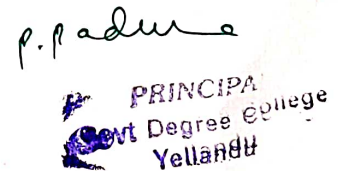 p. padma
PRINCIPA
Govt Degree College
Yellandu